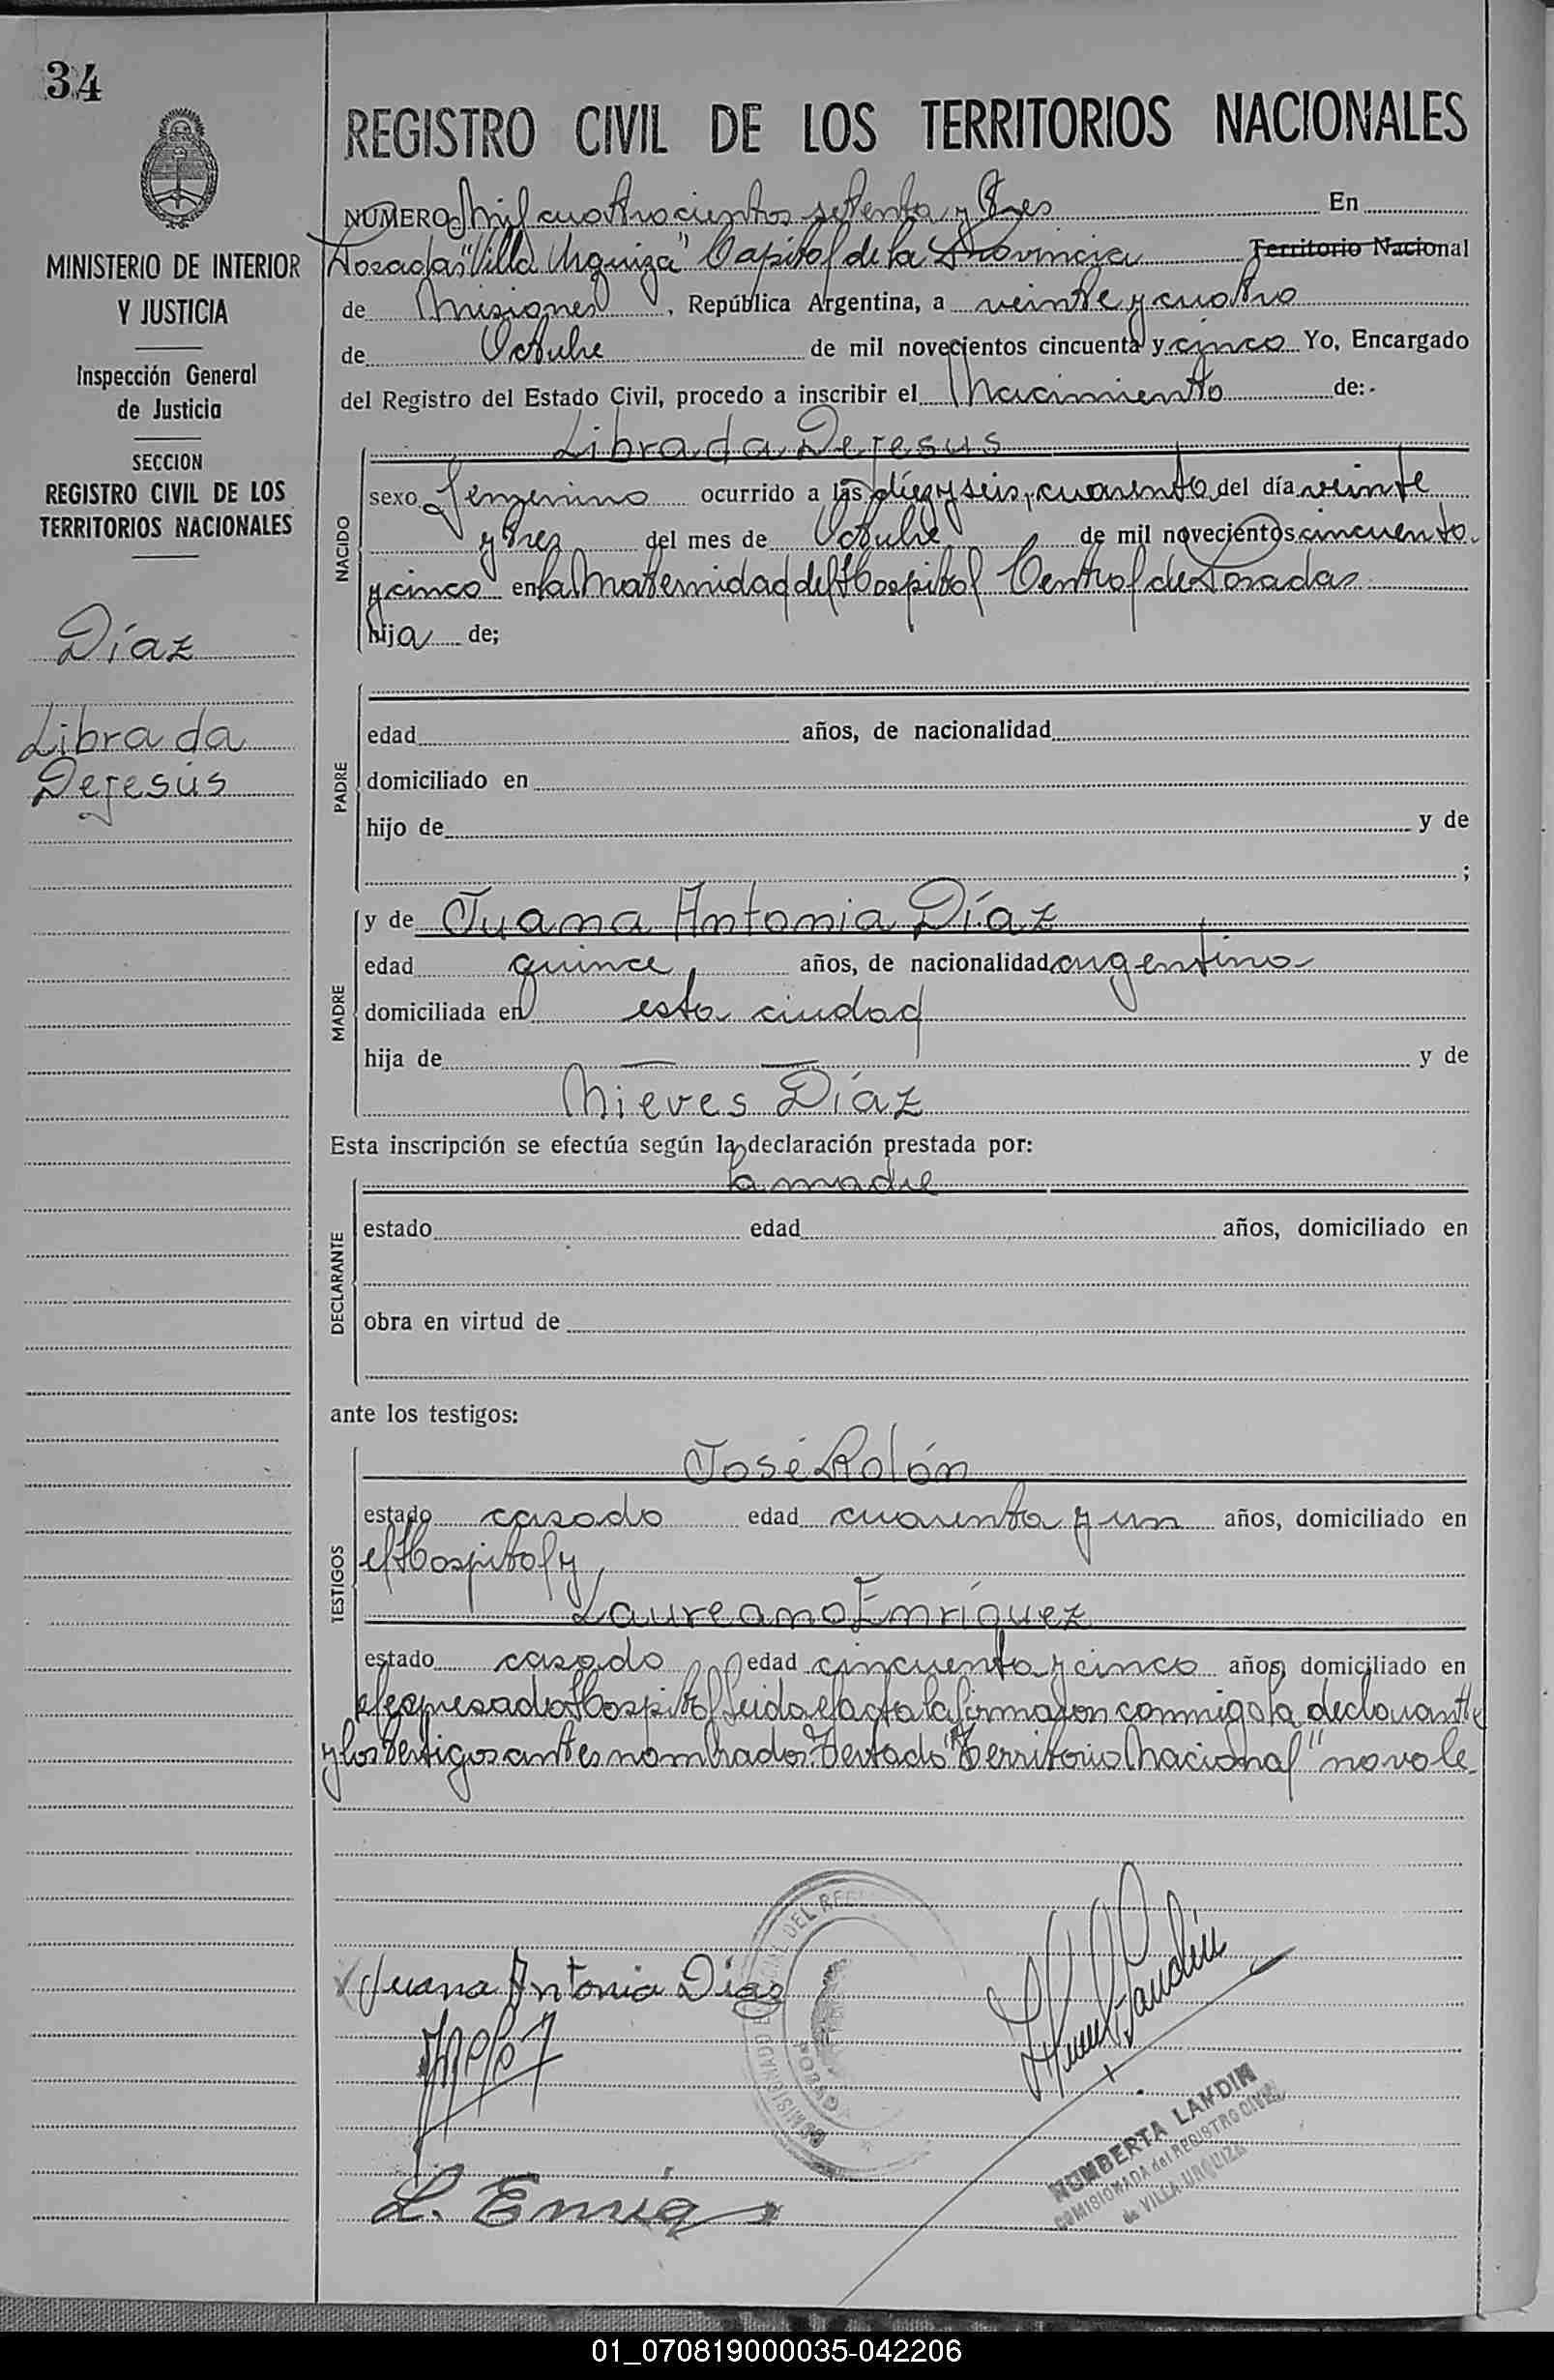 34
REGISTRO CIVIL DE LOS TERRITORIOS NACIONALES
NUMERO Mil cuatrocientos setenta y tres En
Posadas "Villa Urquiza" Capital de la Provincia Territorio Nacional
de Misiones, República Argentina, a veinte y cuatro
de Octubre de mil novecientos cincuenta y cinco Yo, Encargado
del Registro del Estado Civil, procedo a inscribir el Nacimiento de:-
MINISTERIO DE INTERIOR
Y JUSTICIA
Inspección General
de Justicia
SECCION
REGISTRO CIVIL DE LOS
TERRITORIOS NACIONALES
Díaz
Librada
Dejesús
NACIDO
Librada Dejesus
sexo femenino ocurrido a las diez y seis, cuarenta del día veinte
y tres del mes de Octubre de mil novecientos cincuenta
y cinco en la Maternidad del Hospital Central de Posadas
hija de;
PADRE
edad años, de nacionalidad
domiciliado en
hijo de y de
;
MADRE
y de Juana Antonia Díaz
edad quince, años, de nacionalidad argentina
domiciliada en esta ciudad
hija de — — y de
Nieves Díaz
Esta inscripción se efectúa según la declaración prestada por:
DECLARANTE
la madre
estado edad años, domiciliado en
obra en virtud de
ante los testigos:
TESTIGOS
José Rolón
estado casado edad cuarenta y un años, domiciliado en
el Hospital y
Laureano Enríquez
estado casado edad cincuenta y cinco años, domiciliado en
el expresado Hospital Leida el acta la firmaron conmigo la declarante
y los testigos antes nombrados. Testado "Territorio Nacional" no vale.
Juana Antonia Díaz
L. Enriq
DEL REG
COMISIONADO
HUMBERTA LANDIN
COMISIONADA del REGISTRO CIVIL
de VILLA URQUIZA
01_070819000035-042206